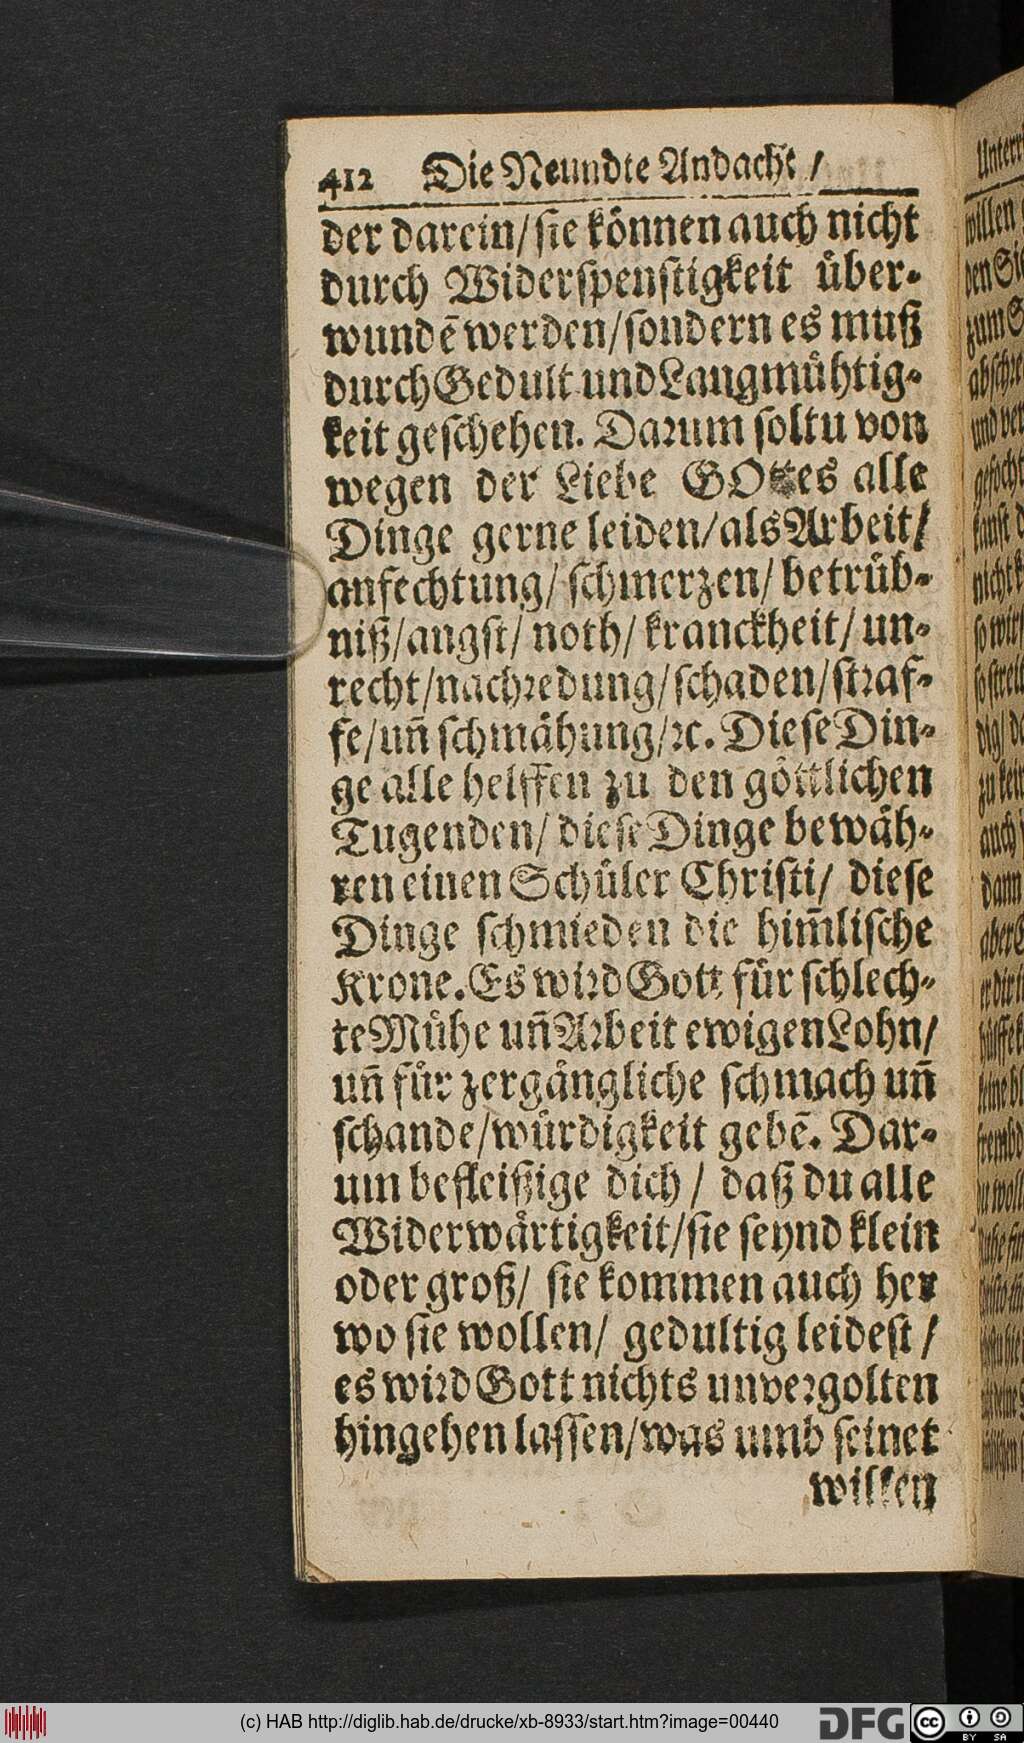 412 Die Neundte Andacht /
der darein/ sie können auch nicht
durch Widerspenstigkeit über-
wundē werden/ sondern es muß
durch Gedult und Langmühtig-
keit geschehen. Darum soltu von
wegen der Liebe GOttes alle
Dinge gerne leiden/ als Arbeit/
anfechtung/ schmerzen/ betrüb-
niß/ angst/ noth/ kranckheit/ un-
recht/ nachredung/ schaden/ straf-
fe/ uñ schmähung/ ꝛc. Diese Din-
ge alle helffen zu den göttlichen
Tugenden/ diese Dinge bewäh-
ren einen Schüler Christi/ diese
Dinge schmieden die him̄lische
Krone. Es wird Gott für schlech-
te Mühe uñ Arbeit ewigen Lohn/
uñ für zergängliche schmach uñ
schande/ würdigkeit gebē. Dar-
um befleißige dich / daß du alle
Widerwärtigkeit/ sie seynd klein
oder groß/ sie kommen auch her
wo sie wollen/ gedultig leidest /
es wird Gott nichts unvergolten
hingehen lassen/ was umb seinet
willen
willen
zum
und
(c) HAB http://diglib.hab.de/drucke/xb-8933/start.htm?image=00440
DFG
cc BY SA